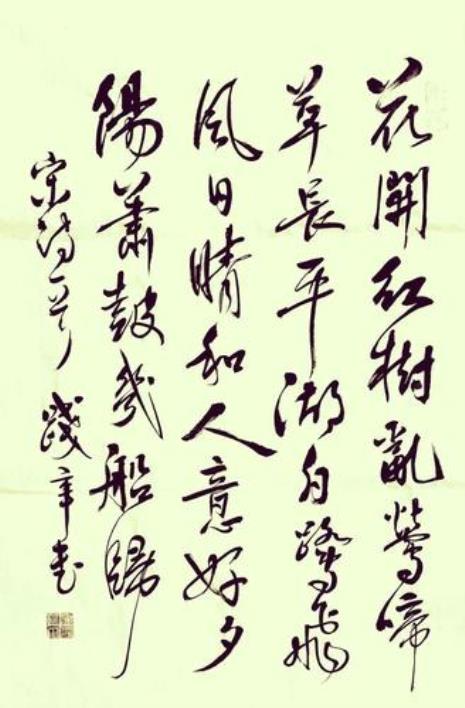 花開紅樹亂鶯啼
草長平湖白鷺飛
風日晴和人意好夕
陽蕭鼓幾船歸
宋詩一首 章書